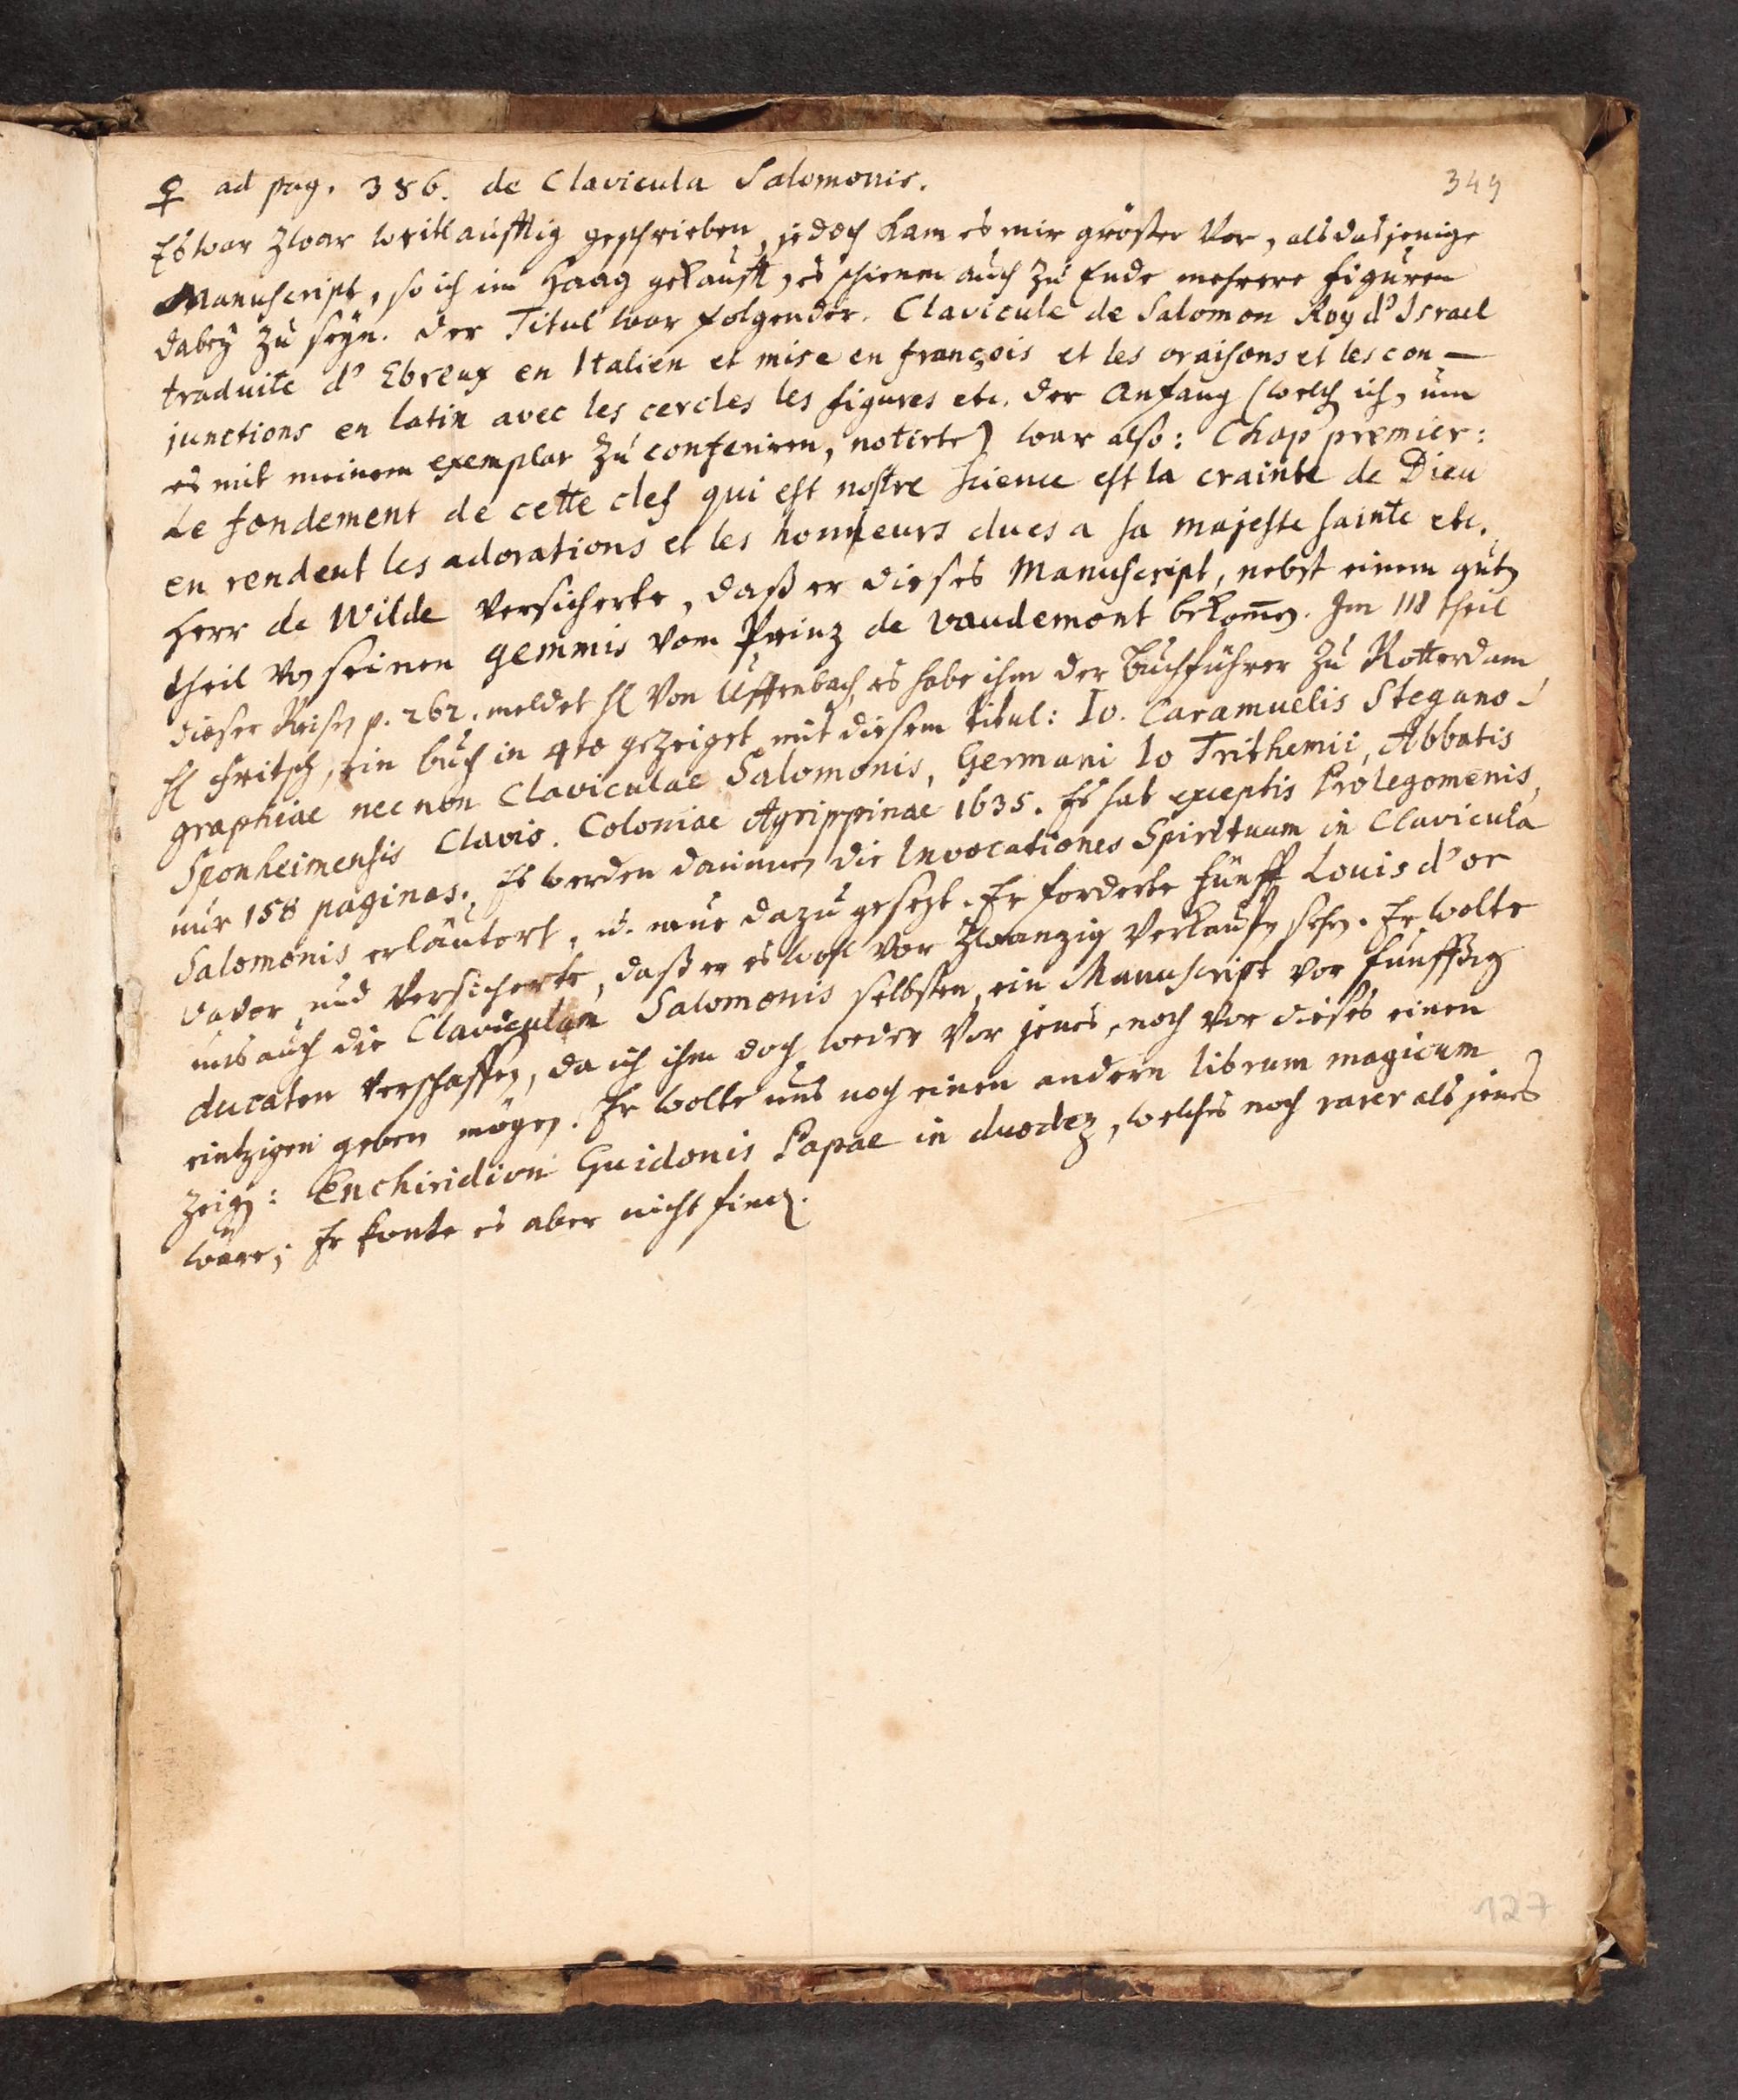 ♀ ad pag. 386. de Clavicula Salomonis.
349
Es war zwar weitläufftig geschrieben, jedoch kam es mir größer vor, als dasjenige
Manuscript, so ich im Haag gekaufft, es schienen auch zu Ende mehrere figuren
dabey zu seyn. der Titul war folgender. Clavicule de Salomon Roy d'Israel
traduite d'Ebreux en Italien et mise en françois et les oraisons et les con-
junctions en latin avec les cercles les figures etc. der Anfang (welch ich, um
es mit meinem exemplar zu conferiren, notirte) war also: Chap premier:
Le fondement de cette clef qui est nostre science est la crainte de Dieu
en rendent les adorations et les honneurs dues a sa majeste sainte etc.
Herr de Wilde versicherte, daß er dieses Manuscript, nebst einem guten
theil von seinen gemmis vom Prinz de Vaudemont bekom̄en. Im III theil
dieser Reisen p. 262. meldet H von Uffenbach, es habe ihm der Buchführer zu Rotterdam
H Fritsch, ein buch in 4to gezeiget mit diesem titul: Io. Caramuelis Stegano-
graphiae nec non Claviculae Salomonis, Germani Io Trithemii, Abbatis
Sponheimensis Clavis. Coloniae Agrippinae 1635. Es hat exceptis Prolegomenis,
nur 158 paginas. Es werden darinnen die Invocationes Spirituum in Clavicula
Salomonis erläutert, u. neue dazu gesezt. Er forderte fünff Louis d'or
davor und versicherte, daß er es wohl vor zwanzig verkaufen sehen. Er wolte
uns auch die Claviculam Salomonis selbsten, ein Manuscript vor funffzig
ducaten verschaffen, da ich ihm doch weder vor jenes, noch vor dieses einen
eintzigen geben mögen. Er wolte uns noch einen andern librum magicum
zeigen: Enchiridion Guidonis Papae in duodez, welches noch rarer als jenes
wäre; Er konte es aber nicht finden.
127